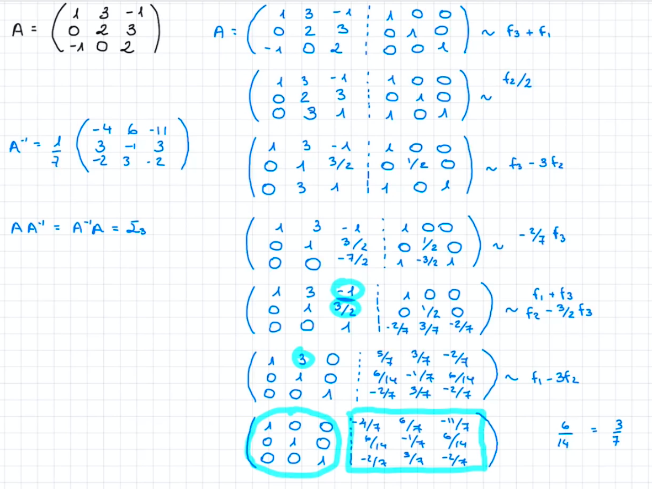 A = ( 1 3 -1
0 2 3
-1 0 2 )
A⁻¹ = 1/7 ( -4 6 -11
3 -1 3
-2 3 -2 )
A A⁻¹ = A⁻¹ A = I₃
A = ( 1 3 -1 ¦ 1 0 0
0 2 3 ¦ 0 1 0
-1 0 2 ¦ 0 0 1 ) ~ f₃ + f₁
( 1 3 -1 ¦ 1 0 0
0 2 3 ¦ 0 1 0
0 3 1 ¦ 1 0 1 ) ~ f₂/2
( 1 3 -1 ¦ 1 0 0
0 1 3/2 ¦ 0 1/2 0
0 3 1 ¦ 1 0 1 ) ~ f₃ - 3f₂
( 1 3 -1 ¦ 1 0 0
0 1 3/2 ¦ 0 1/2 0
0 0 -7/2 ¦ 1 -3/2 1 ) ~ -2/7 f₃
( 1 3 -1 ¦ 1 0 0
0 1 3/2 ¦ 0 1/2 0
0 0 1 ¦ -2/7 3/7 -2/7 ) ~ f₁ + f₃
f₂ - 3/2 f₃
( 1 3 0 ¦ 5/7 3/7 -2/7
0 1 0 ¦ 6/14 -1/7 6/14
0 0 1 ¦ -2/7 3/7 -2/7 ) ~ f₁ - 3f₂
( 1 0 0 ¦ -4/7 6/7 -11/7
0 1 0 ¦ 6/14 -1/7 6/14
0 0 1 ¦ -2/7 3/7 -2/7 )
6/14 = 3/7